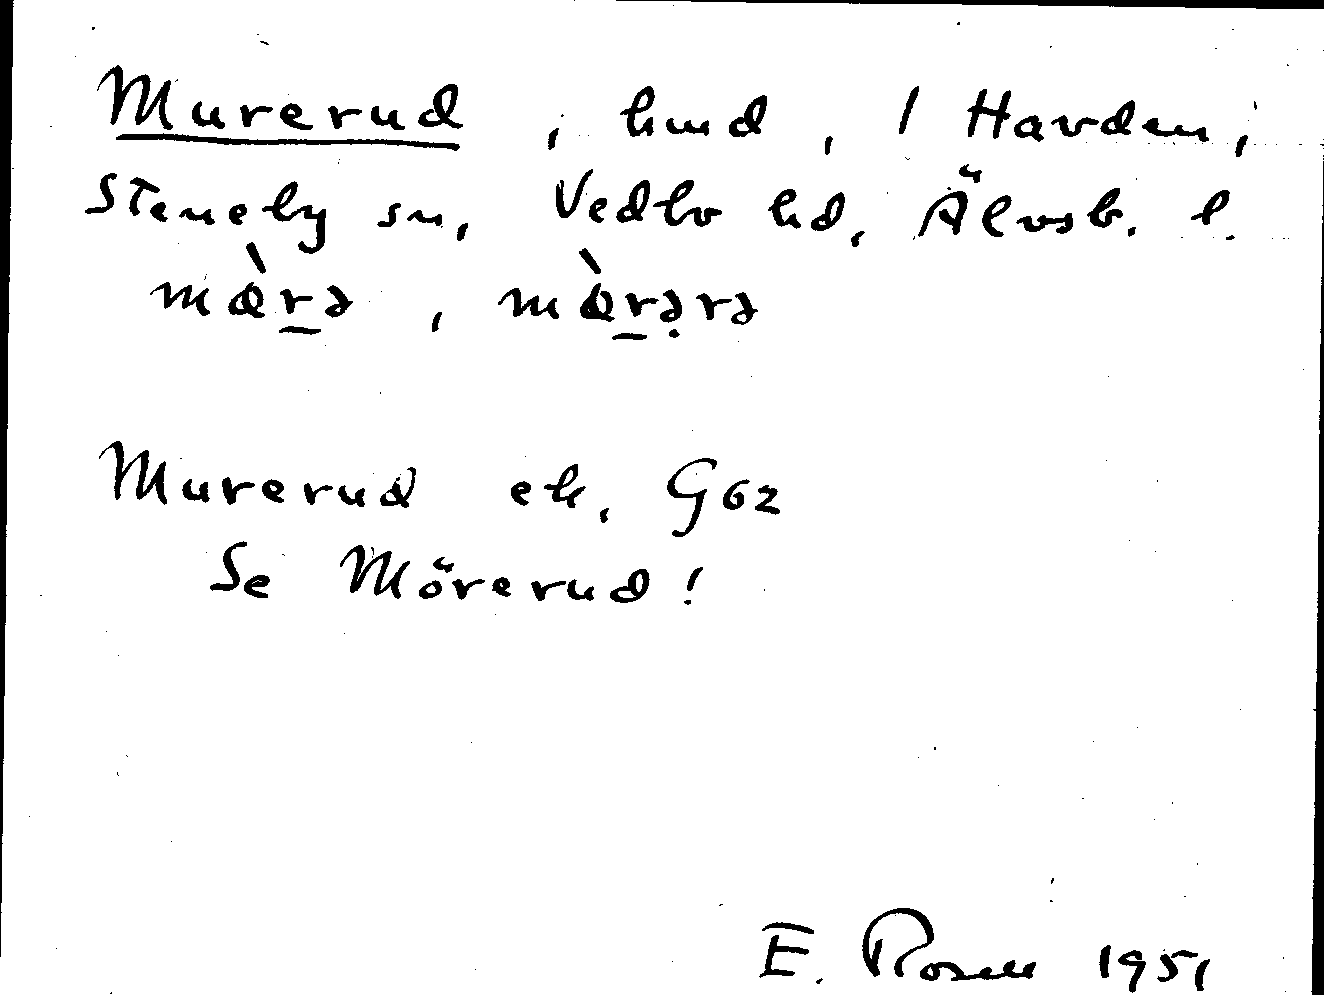 Murerud, hmd, 1 Havden,
Steneby sn, Vedbo hd, Älvsb. l.
mɵ̀r̲ə, mɵ̀r̲ə̣rə
Murerud ek, G62
Se Mörerud!
E. Rosell 1951